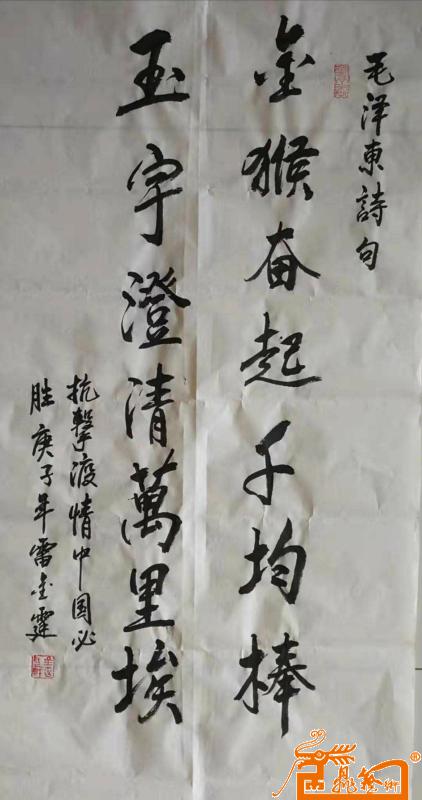 毛泽東詩句
金猴奋起千均棒
玉宇澄清萬里埃
抗擊疫情中国必
胜庚子年雷金霆